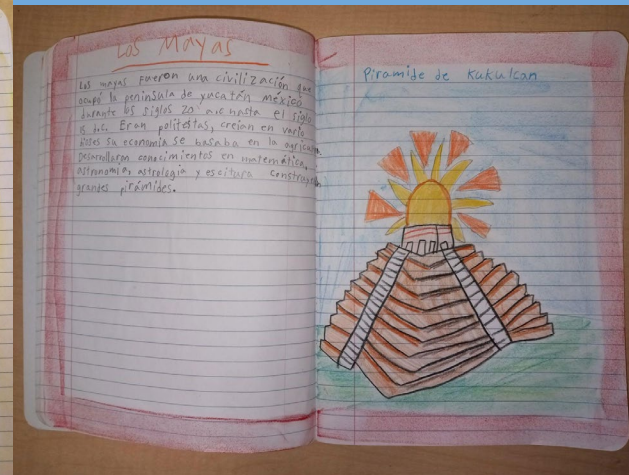 Los Mayas
Los mayas fueron una civilización que
ocupó la península de yucatán méxico
durante los siglos 20 a.c hasta el siglo
15 d.c. Eran politestas, creían en vario
Dioses su economía se basaba en la agricultura
Desarrollaron conocimientos en matemática,
astronomía, astrología y escitura construyeron
grandes pirámides.
Piramide de Kukulcan